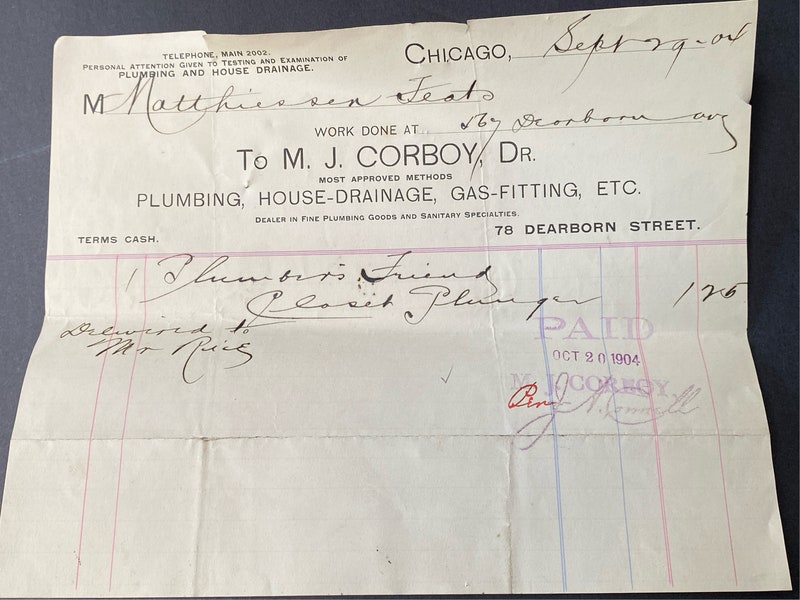 TELEPHONE, MAIN 2002.
PERSONAL ATTENTION GIVEN TO TESTING AND EXAMINATION OF
PLUMBING AND HOUSE DRAINAGE.
CHICAGO, Sept 29-04
M Matthiessen
WORK DONE AT Dearborn ave
TO M. J. CORBOY, DR.
MOST APPROVED METHODS
PLUMBING, HOUSE-DRAINAGE, GAS-FITTING, ETC.
DEALER IN FINE PLUMBING GOODS AND SANITARY SPECIALTIES.
TERMS CASH.
78 DEARBORN STREET.
1 Plumber's Friend
Closet Plunger 1 25
Delivered to
Mr Rice
PAID
OCT 20 1904
M. J. CORBOY
Per